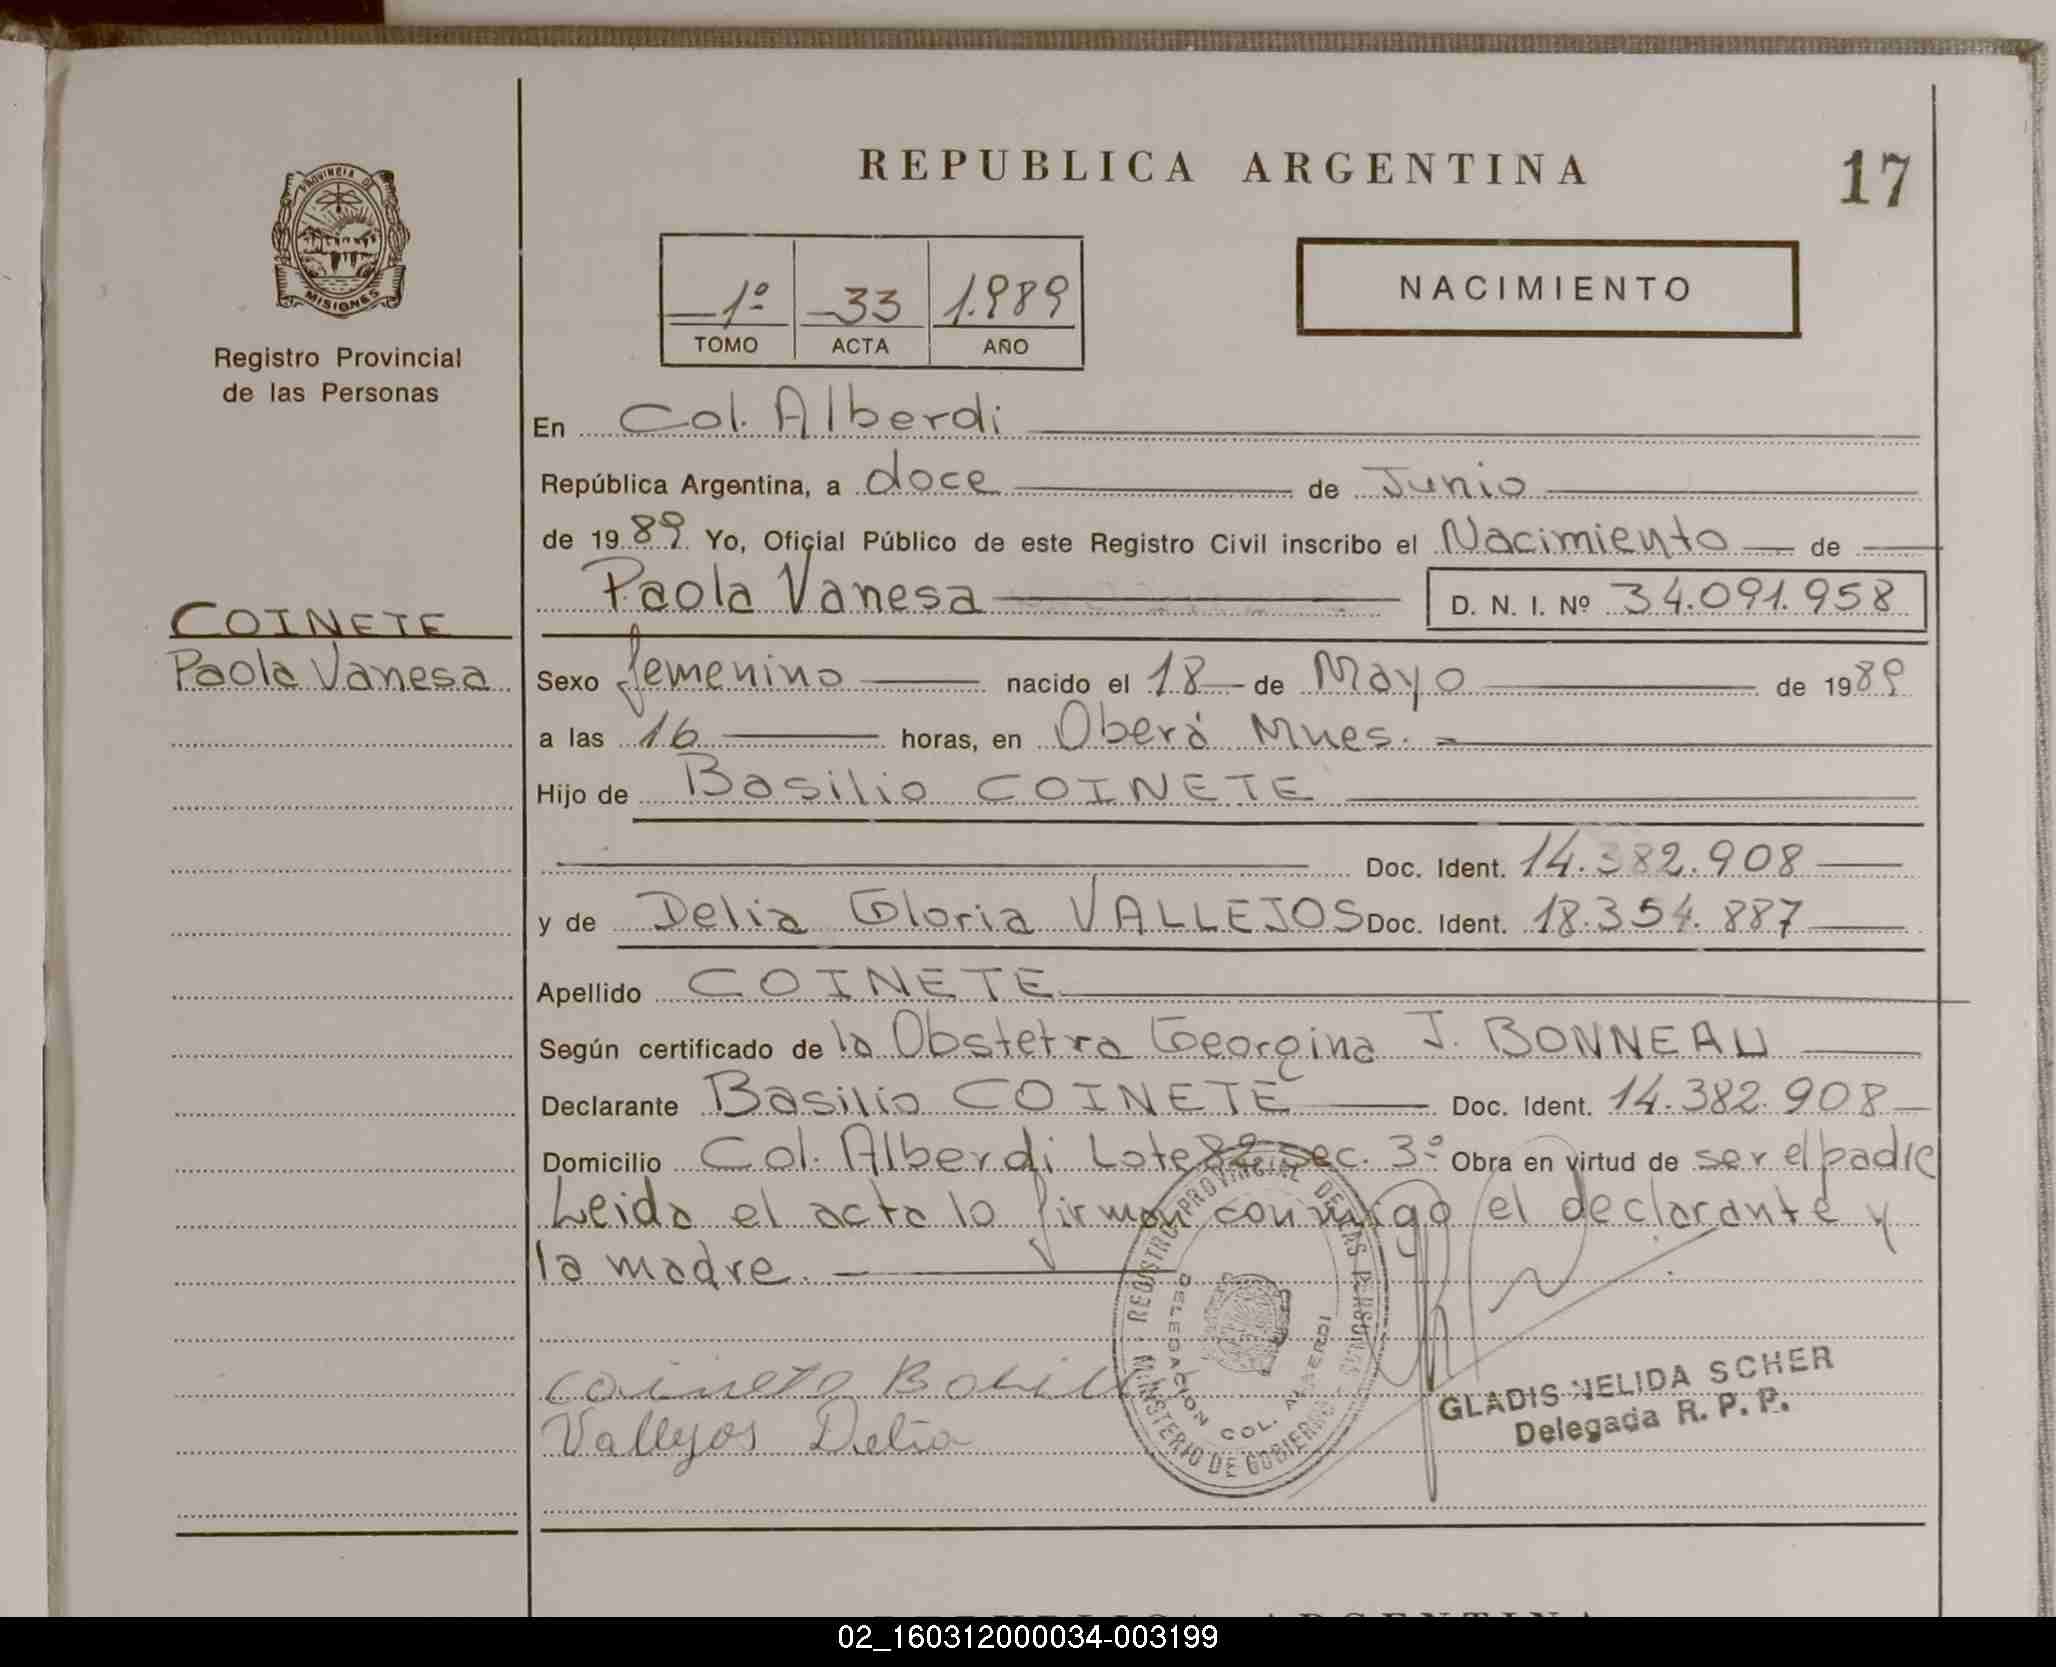 REPUBLICA ARGENTINA
17
PROVINCIA DE
MISIONES
Registro Provincial
de las Personas
1º 33 1.989
TOMO ACTA AÑO
NACIMIENTO
En Col. Alberdi
República Argentina, a doce de Junio
de 1989 Yo, Oficial Público de este Registro Civil inscribo el Nacimiento de
Paola Vanesa D. N. I. Nº 34.091.958
COINETE
Paola Vanesa
Sexo femenino nacido el 18 de Mayo de 1989
a las 16 horas, en Oberá Mnes.
Hijo de Basilio COINETE
Doc. Ident. 14.382.908
y de Delia Gloria VALLEJOS Doc. Ident. 18.354.887
Apellido COINETE
Según certificado de la Obstetra Georgina J. BONNEAU
Declarante Basilio COINETE Doc. Ident. 14.382.908
Domicilio Col. Alberdi Lote 82 sec. 3º Obra en virtud de ser el padre
Leida el acta lo firman conmigo el declarante y
la madre.
REGISTRO PROVINCIAL DE LAS PERSONAS
MINISTERIO DE GOBIERNO
DELEGACION COL. ALBERDI
Vallejos Delia
GLADIS NELIDA SCHER
Delegada R. P. P.
REPUBLICA ARGENTINA
02_160312000034-003199